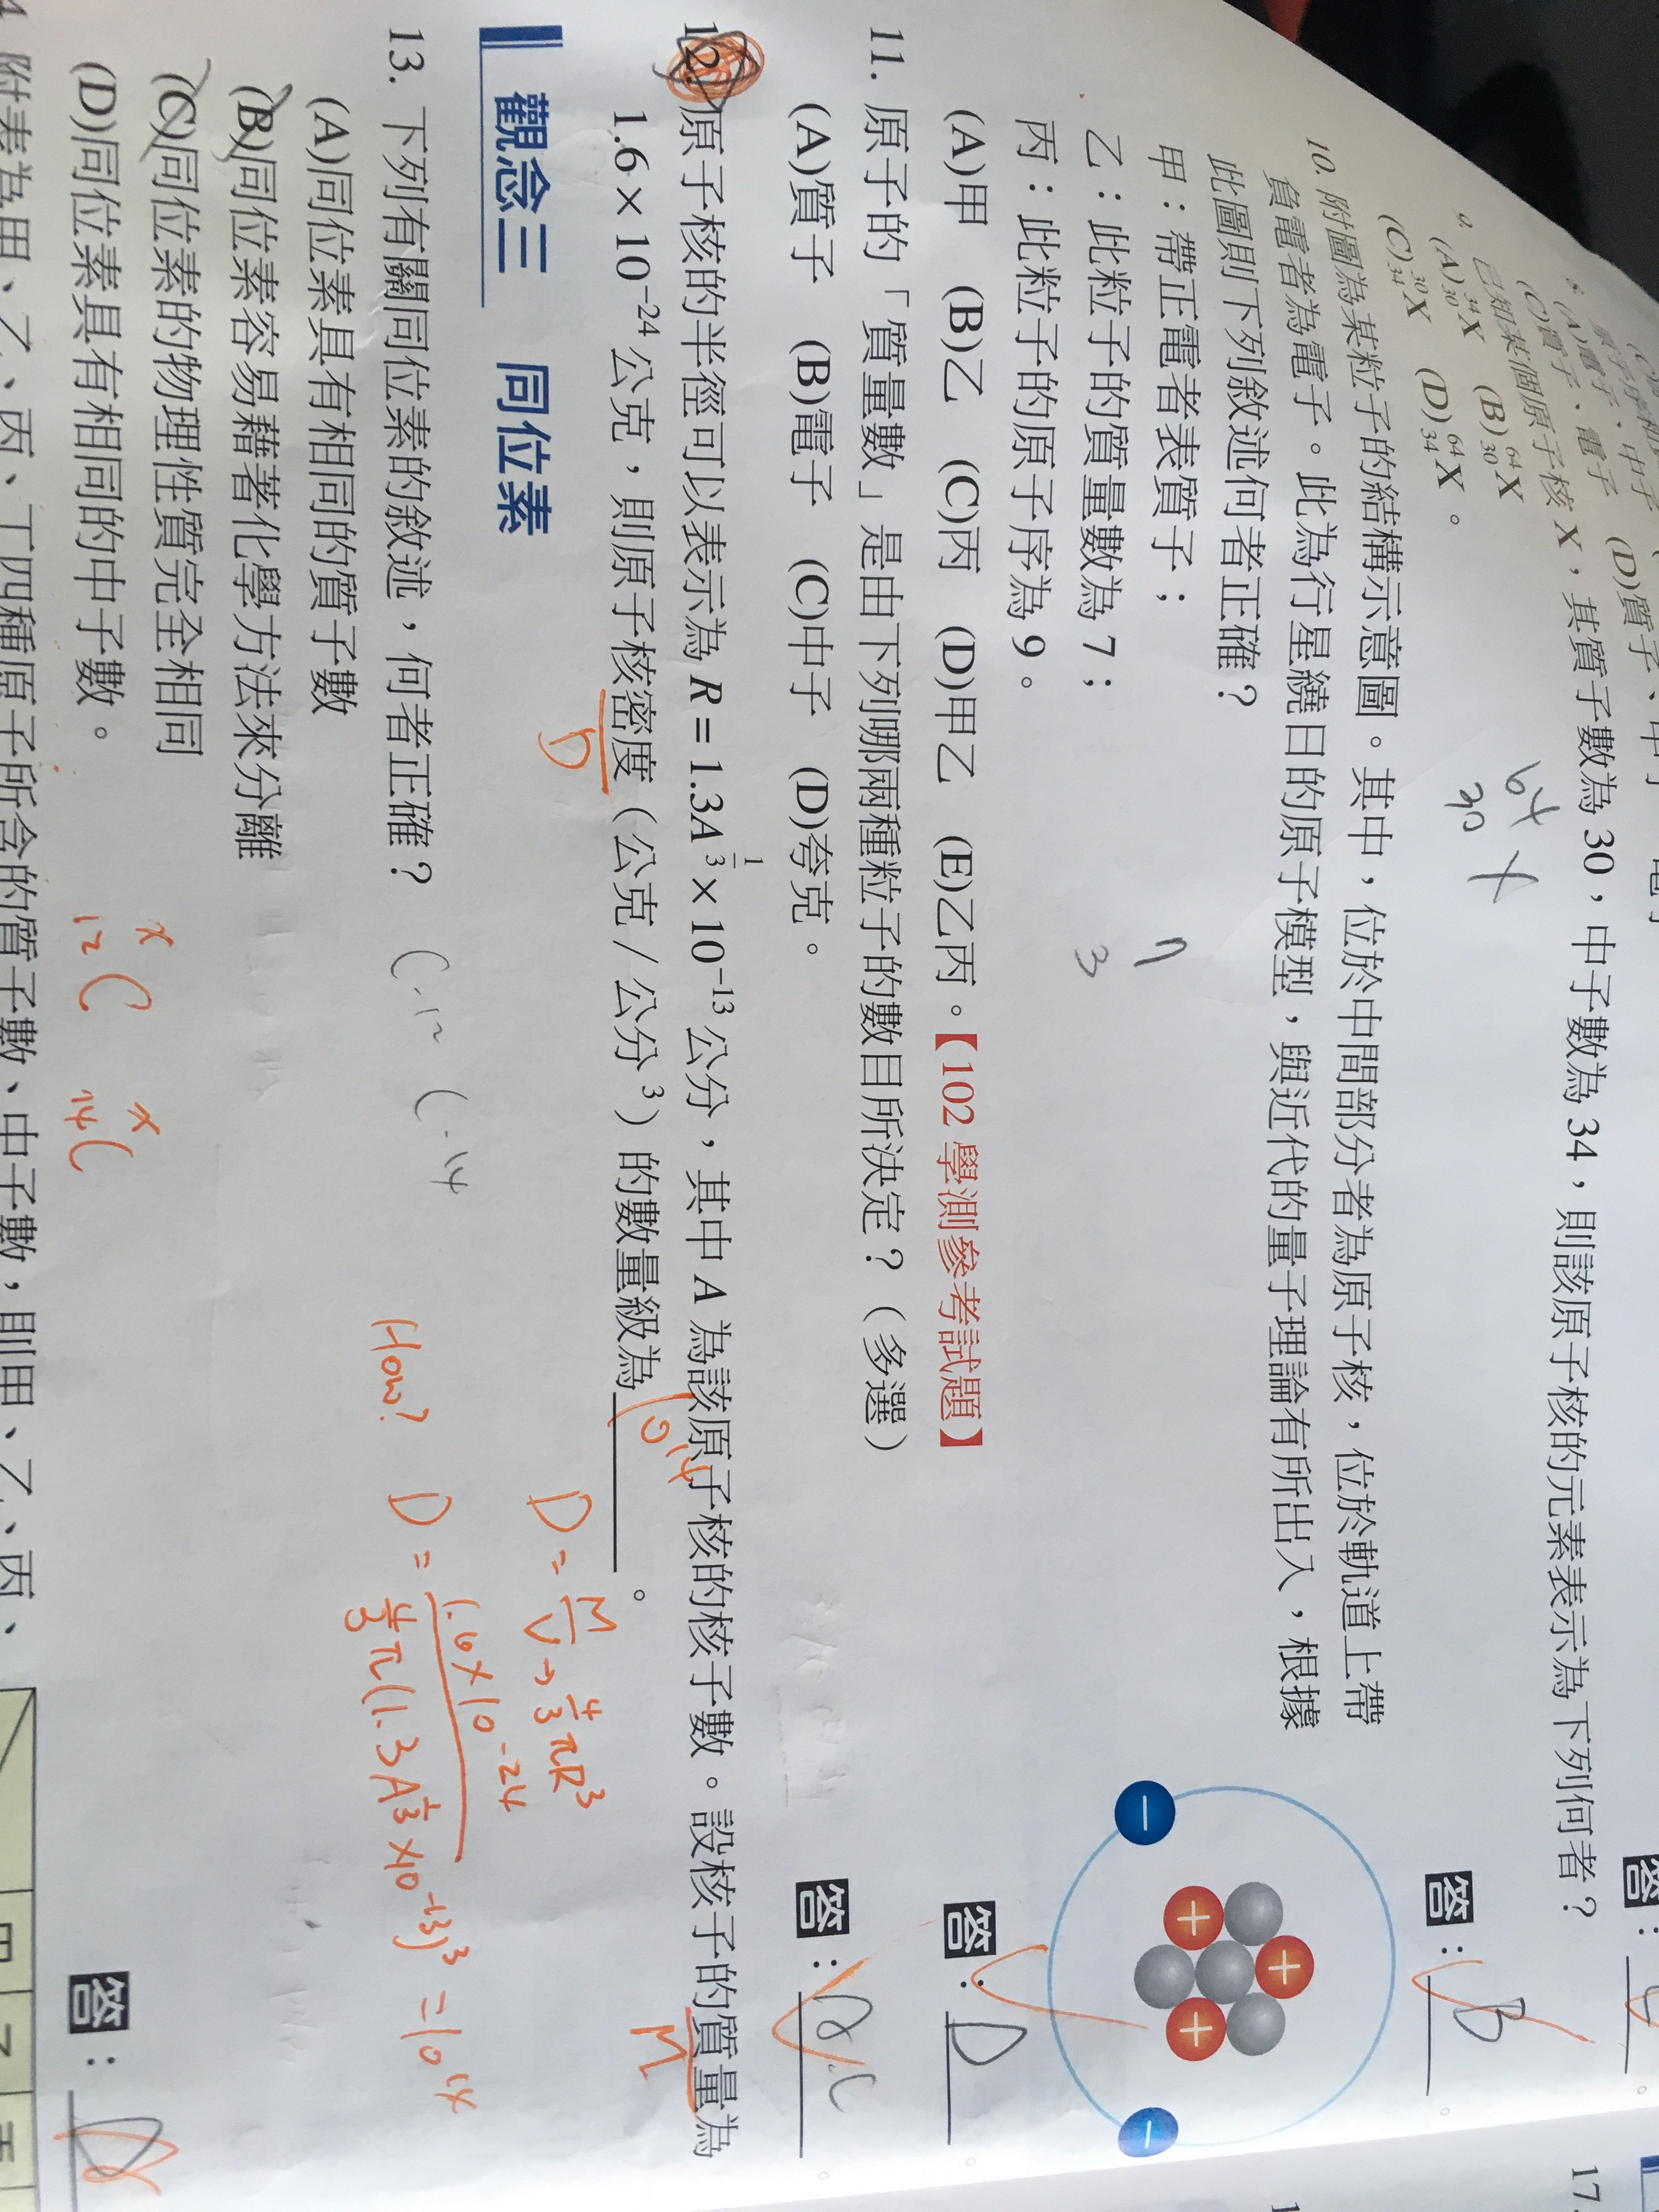 (A)電子、電子
(C)電子、中子 (D)質子、
9. 已知某個原子核 X，其質子數為 30，中子數為 34，則該原子核的元素表示為下列何者？
(A)³⁴₃₀X (B)⁶⁴₃₀X
(C)³⁰₃₄X (D)⁶⁴₃₄X。
64
30 X
答：B
10. 附圖為某粒子的結構示意圖。其中，位於中間部分者為原子核，位於軌道上帶
負電者為電子。此為行星繞日的原子模型，與近代的量子理論有所出入，根據
此圖則下列敘述何者正確？
甲：帶正電者表質子；
乙：此粒子的質量數為 7；
丙：此粒子的原子序為 9。
7
3
(A)甲 (B)乙 (C)丙 (D)甲乙 (E)乙丙。【102 學測參考試題】
答：D
11. 原子的「質量數」是由下列哪兩種粒子的數目所決定？（多選）
(A)質子 (B)電子 (C)中子 (D)夸克。
答：
12. 原子核的半徑可以表示為 R = 1.3A^(1/3) × 10⁻¹³ 公分，其中 A 為該原子核的核子數。設核子的質量為
M
1.6 × 10⁻²⁴ 公克，則原子核密度（公克 / 公分³）的數量級為 10¹⁴。
D
D = M/V → 4/3 πR³
How? D = 1.6×10⁻²⁴ / 4/3 π(1.3A^(1/3)×10⁻¹³)³ = 10¹⁴
觀念三 同位素
13. 下列有關同位素的敘述，何者正確？ C-12 C-14
(A)同位素具有相同的質子數
(B)同位素容易藉著化學方法來分離
(C)同位素的物理性質完全相同
(D)同位素具有相同的中子數。
x
12 C
x
14 C
答：
附表為甲、乙、丙、丁四種原子所含的質子數、中子數，則甲、乙、丙、
17.